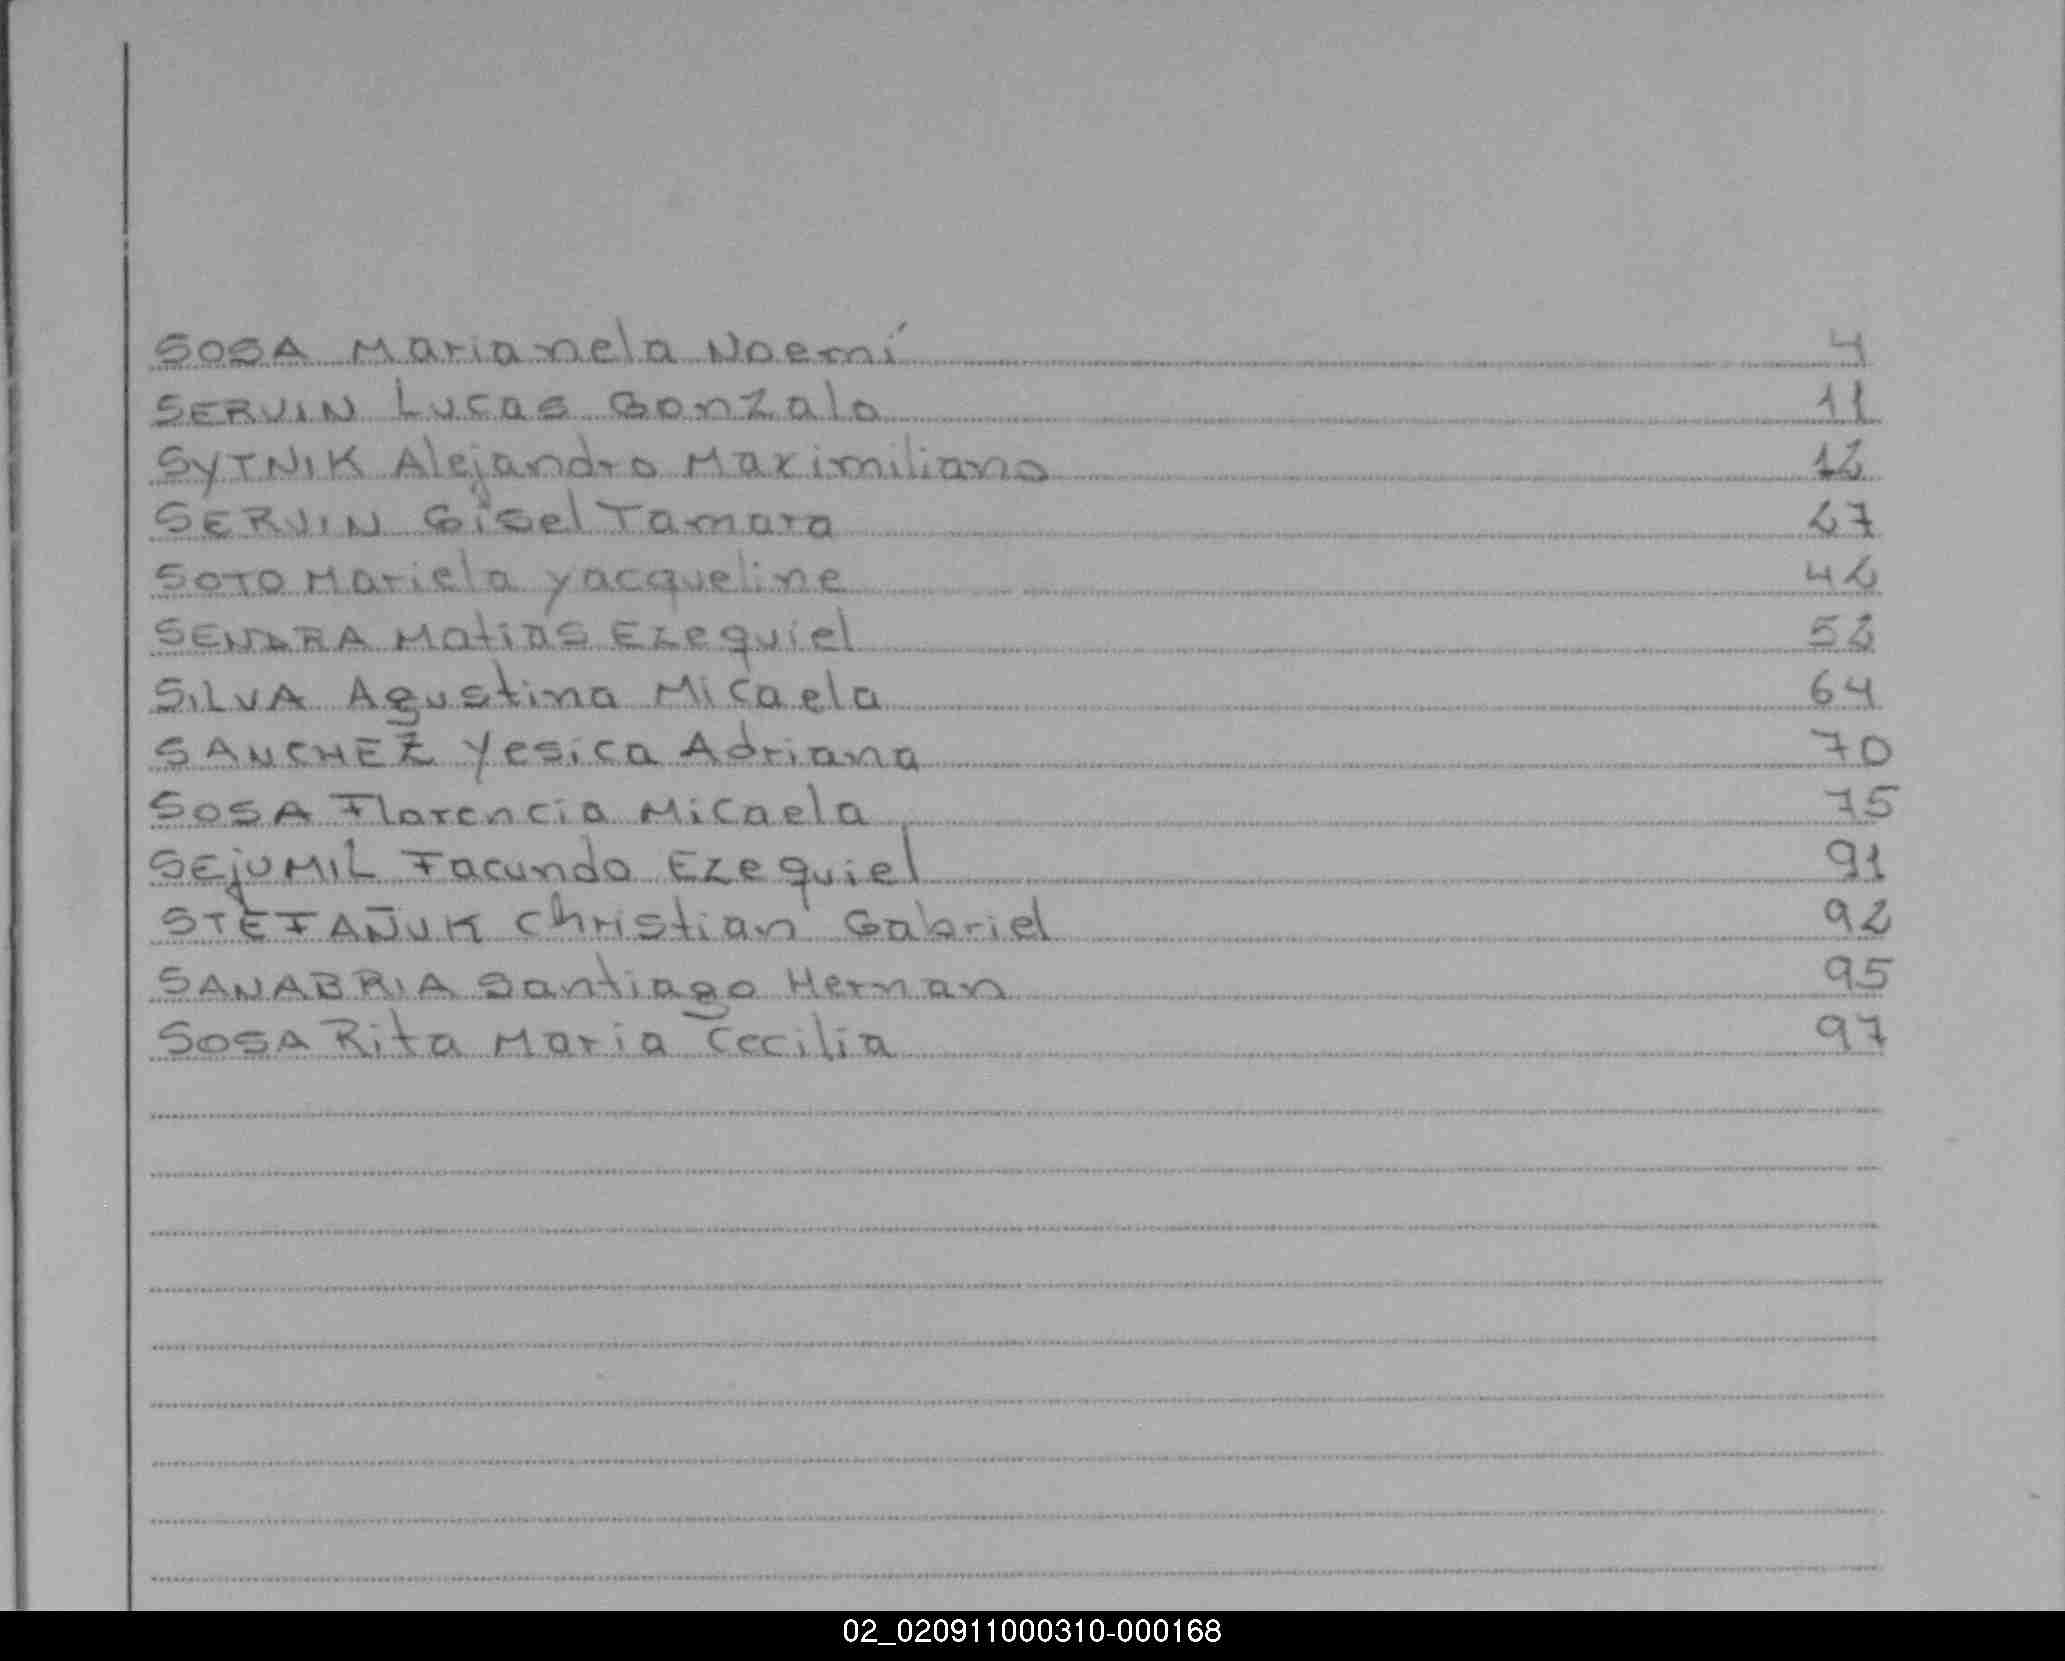 SOSA Marianela Noemí 4
SERVIN Lucas Gonzalo 11
SYTNIK Alejandro Maximiliano 12
SERVIN Gisel Tamara 27
SOTO Mariela Yacqueline 42
SENDRA Matias Ezequiel 52
SILVA Agustina Micaela 64
SANCHEZ Yesica Adriana 70
SOSA Florencia Micaela 75
SEjUMIL Facundo Ezequiel 91
STEFAÑUK Christian Gabriel 92
SANABRIA Santiago Hernan 95
SOSA Rita Maria Cecilia 97
02_020911000310-000168